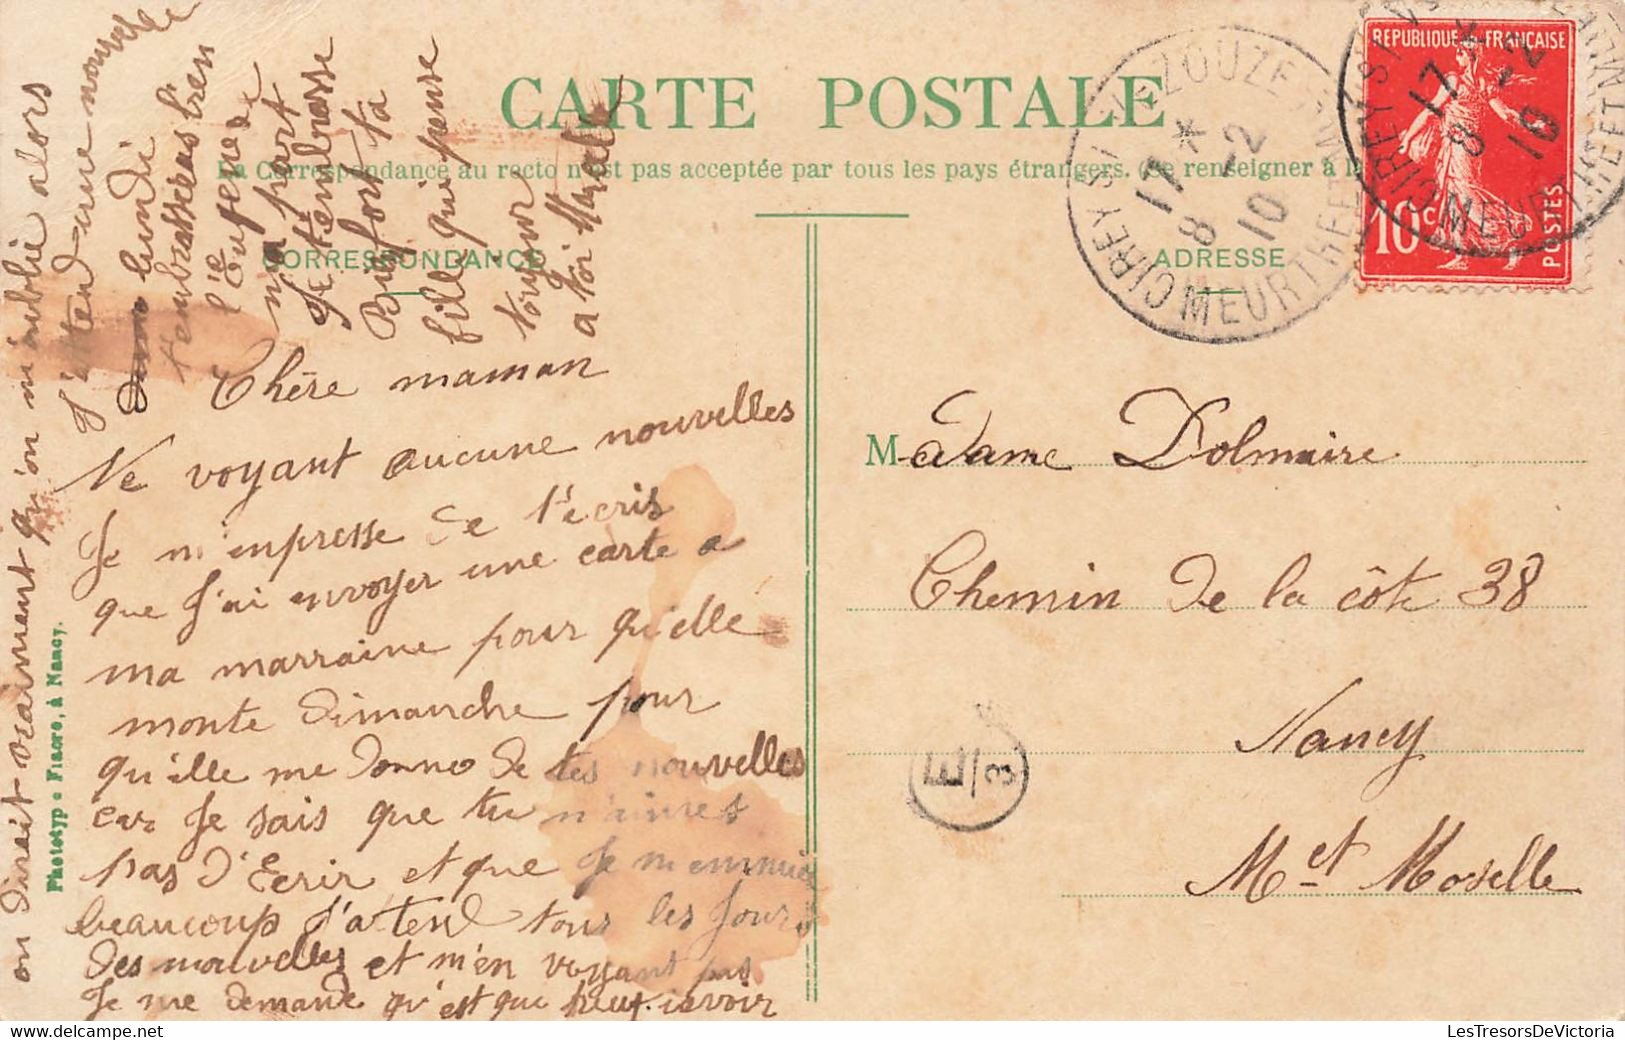 CARTE POSTALE
La Correspondance au recto n'est pas acceptée par tous les pays étrangers. (Se renseigner à la
CORRESPONDANCE
ADRESSE
REPUBLIQUE FRANÇAISE
10c
POSTES
CIREY S/ VEZOUZE
17 *
8 -2
10
MEURTHE ET M
CIREY S/
17 *
8 -2
10
MEURTHE ET M
Chère maman
Ne voyant aucune nouvelles
Je m'enpresse de t'écris
que J'ai envoyer une carte a
ma marraine pour qu'elle
monte dimanche pour
qu'ille me donne de tes nouvelles
car Je sais que tu n'aimes
pas d'Ecrir et que Je m'ennuie
beaucoup J'attend tous les Jours
des nouvelles et m'en voyant pas
Je me demande qu'est que peut. iavoir
on dirait vraiment qu'on m'oublie alors
J'attend une nouvelle
lundi
tembrasseras bien
l'ie Eugenie
ma part
Je tembrasse
Bien fort ta
fille qui pense
toujour
a toi Marcelle
Madame Dolmaire
Chemin de la côte 38
Nancy
M et Moselle
E
3
Phototypie Fiacre, à Nancy.
LesTresorsDeVictoria
www.delcampe.net